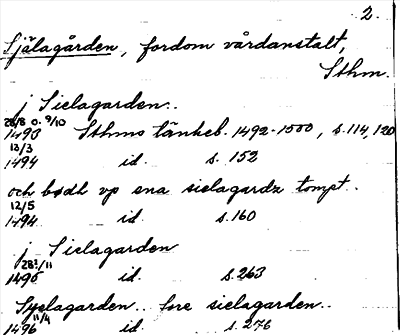 2.
Själagården, fordom vårdanstalt,
Sthm.
j Sielagarden..
28/8 o. 9/10
1493 Sthms tänkeb. 1492-1500, s. 114, 120
12/3
1494 id. s. 152
och bødh vp ena sielagardz tompt..
12/5
1494 id. s. 160
j Sielagarden
28?/11
1495 id. s. 263
Syelagarden.. fore sielagarden..
11/4
1496 id. s. 276